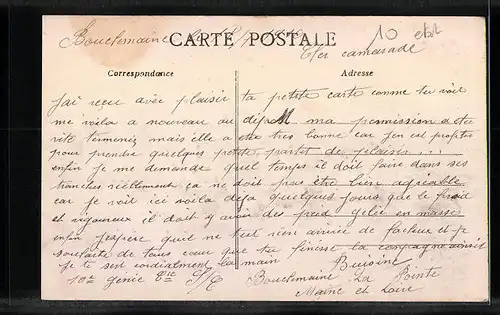 Bouchemaine
CARTE POSTALE
10
Cher camarade
Correspondance
Adresse
J'ai reçu avec plaisir ta petite carte comme tu vois
me voila a nouveau au dépot ma permission a été
vite terminée mais elle a été tres bonne car j'en ai profité
pour prendre quelques petite partit de plaisir....
enfin je me demande quel temps il doit faire dans ses
tranches réellement ça ne doit pas être bien agréable
car je voit ici voila deja quelques jours que le froid
et rigoureux il doit y avoir des pied gelée en masse
enfin j'espère quil ne tut rien arrivée de facheux et je
souhaite de tous cœur que tu finisse la compagne ainsit
je te sert cordialement la main
Buisine
10me genie
Bouchemaine La Pointe
Maine et Loire